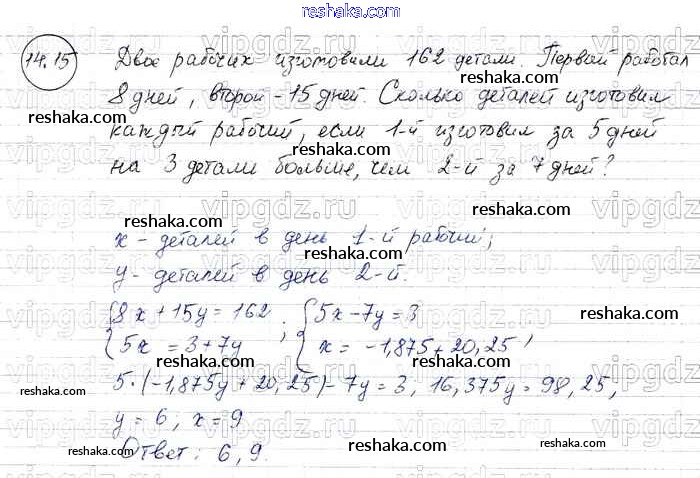 reshaka.com
14.15 Двое рабочих изготовили 162 детали. Первый работал
8 дней, второй - 15 дней. Сколько деталей изготовил
каждый рабочий, если 1-й изготовил за 5 дней
на 3 детали больше, чем 2-й за 7 дней?
x - деталей в день 1-й рабочий;
y - деталей в день 2-й.
{8x + 15y = 162 ; {5x - 7y = 3
{5x = 3 + 7y {x = -1,875 + 20,25 ,
5·(-1,875y + 20,25) - 7y = 3, 16,375y = 98,25,
y = 6 ; x = 9
Ответ: 6, 9.
reshaka.com